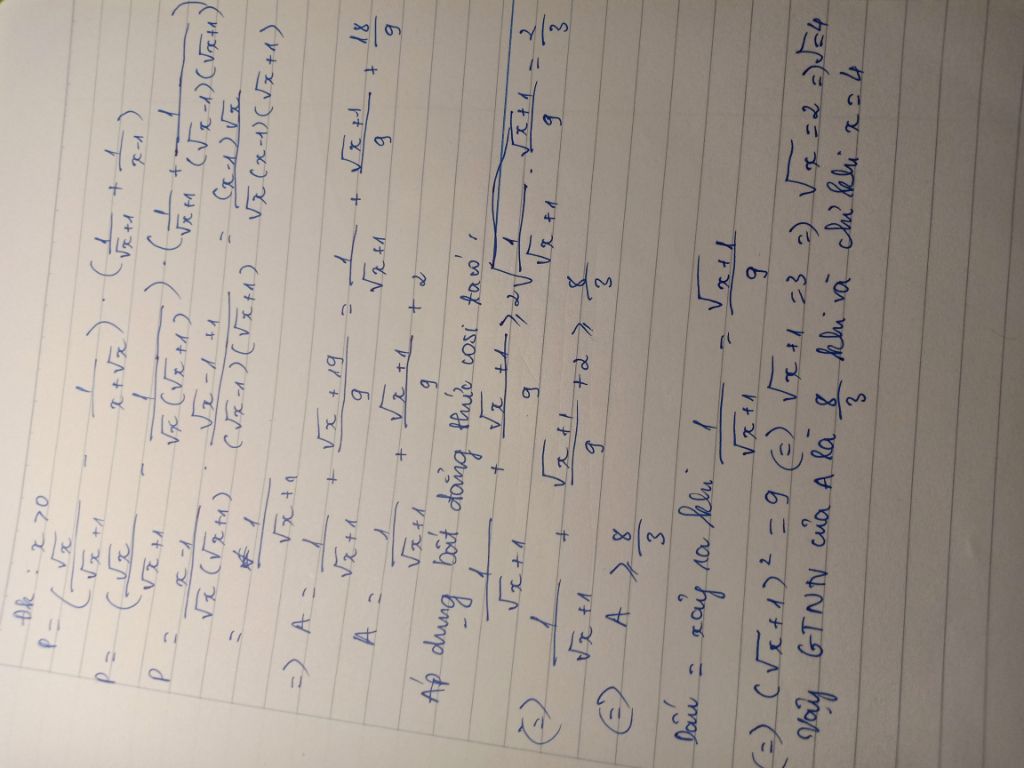 Đk : x > 0
P = (√x/(√x+1) - 1/(x+√x)) . (1/(√x+1) + 1/(x-1))
P = (√x/(√x+1) - 1/(√x(√x+1))) . (1/(√x+1) + 1/((√x-1)(√x+1)))
P = (x-1)/(√x(√x+1)) . (√x-1+1)/((√x-1)(√x+1)) = ((x-1)√x)/(√x(x-1)(√x+1))
= 1/(√x+1)
=) A = 1/(√x+1) + (√x+19)/9 = 1/(√x+1) + (√x+1)/9 + 18/9
A = 1/(√x+1) + (√x+1)/9 + 2
Áp dụng bất đẳng thức cosi ta có
1/(√x+1) + (√x+1)/9 ⩾ 2√(1/(√x+1) . (√x+1)/9) = 2/3
(=) 1/(√x+1) + (√x+1)/9 + 2 ⩾ 8/3
(=) A ⩾ 8/3
Dấu = xảy ra khi 1/(√x+1) = (√x+1)/9
(=) (√x+1)² = 9 (=) √x+1 = 3 =) √x = 2 =) √=4
Vậy GTNN của A là 8/3 khi và chỉ khi x = 4